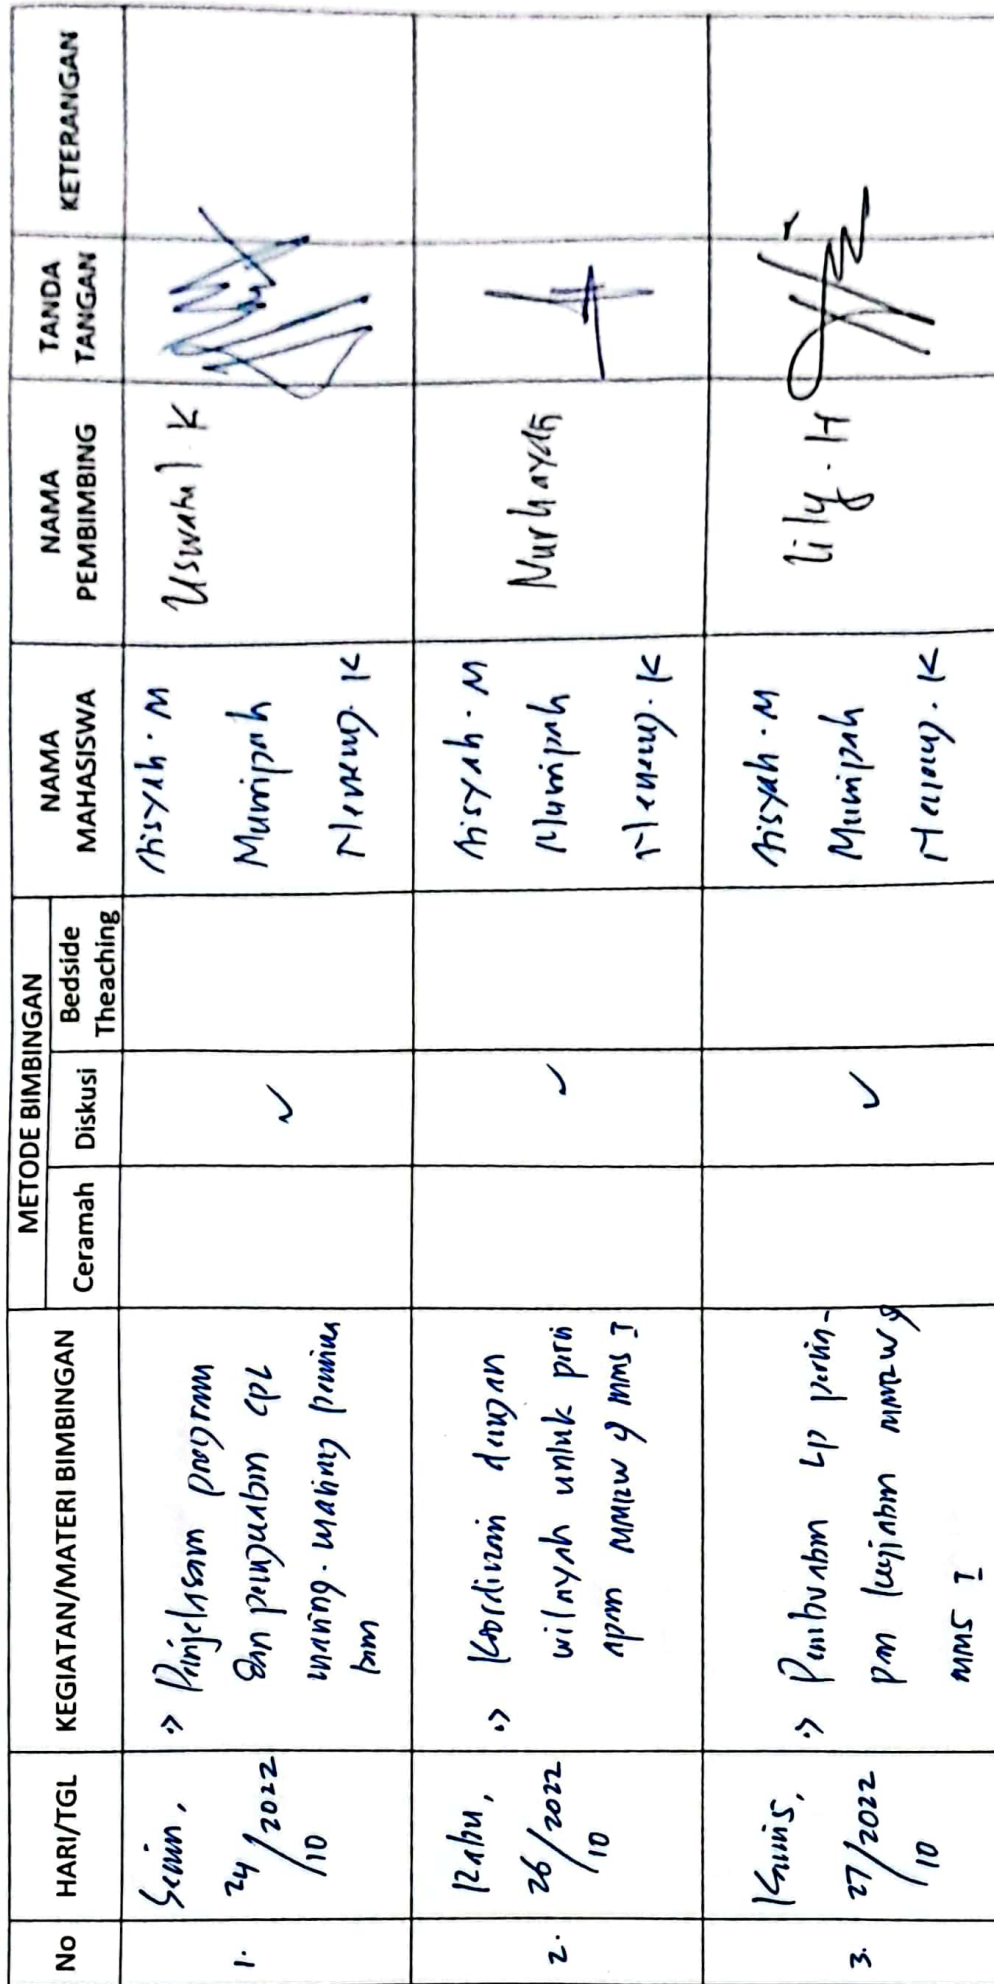 No
HARI/TGL
KEGIATAN/MATERI BIMBINGAN
METODE BIMBINGAN
Ceramah
Diskusi
Bedside
Theaching
NAMA
MAHASISWA
NAMA
PEMBIMBING
TANDA
TANGAN
KETERANGAN
1.
Senin,
24/2022
/10
Penjelasan program
dan pengurusan CPL
masing-masing
✓
Aisyah. M
Munipah
Neneng. K
Uswatul. K
2.
Rabu,
26/2022
/10
Koordinasi dengan
wilayah untuk
MMRW & MMS I
✓
Aisyah. M
Munipah
Neneng. K
Nurhayati
3.
Kamis,
27/2022
/10
Pembuatan LP
MMRW &
MMS I
✓
Aisyah. M
Munipah
Neneng. K
Lily. H